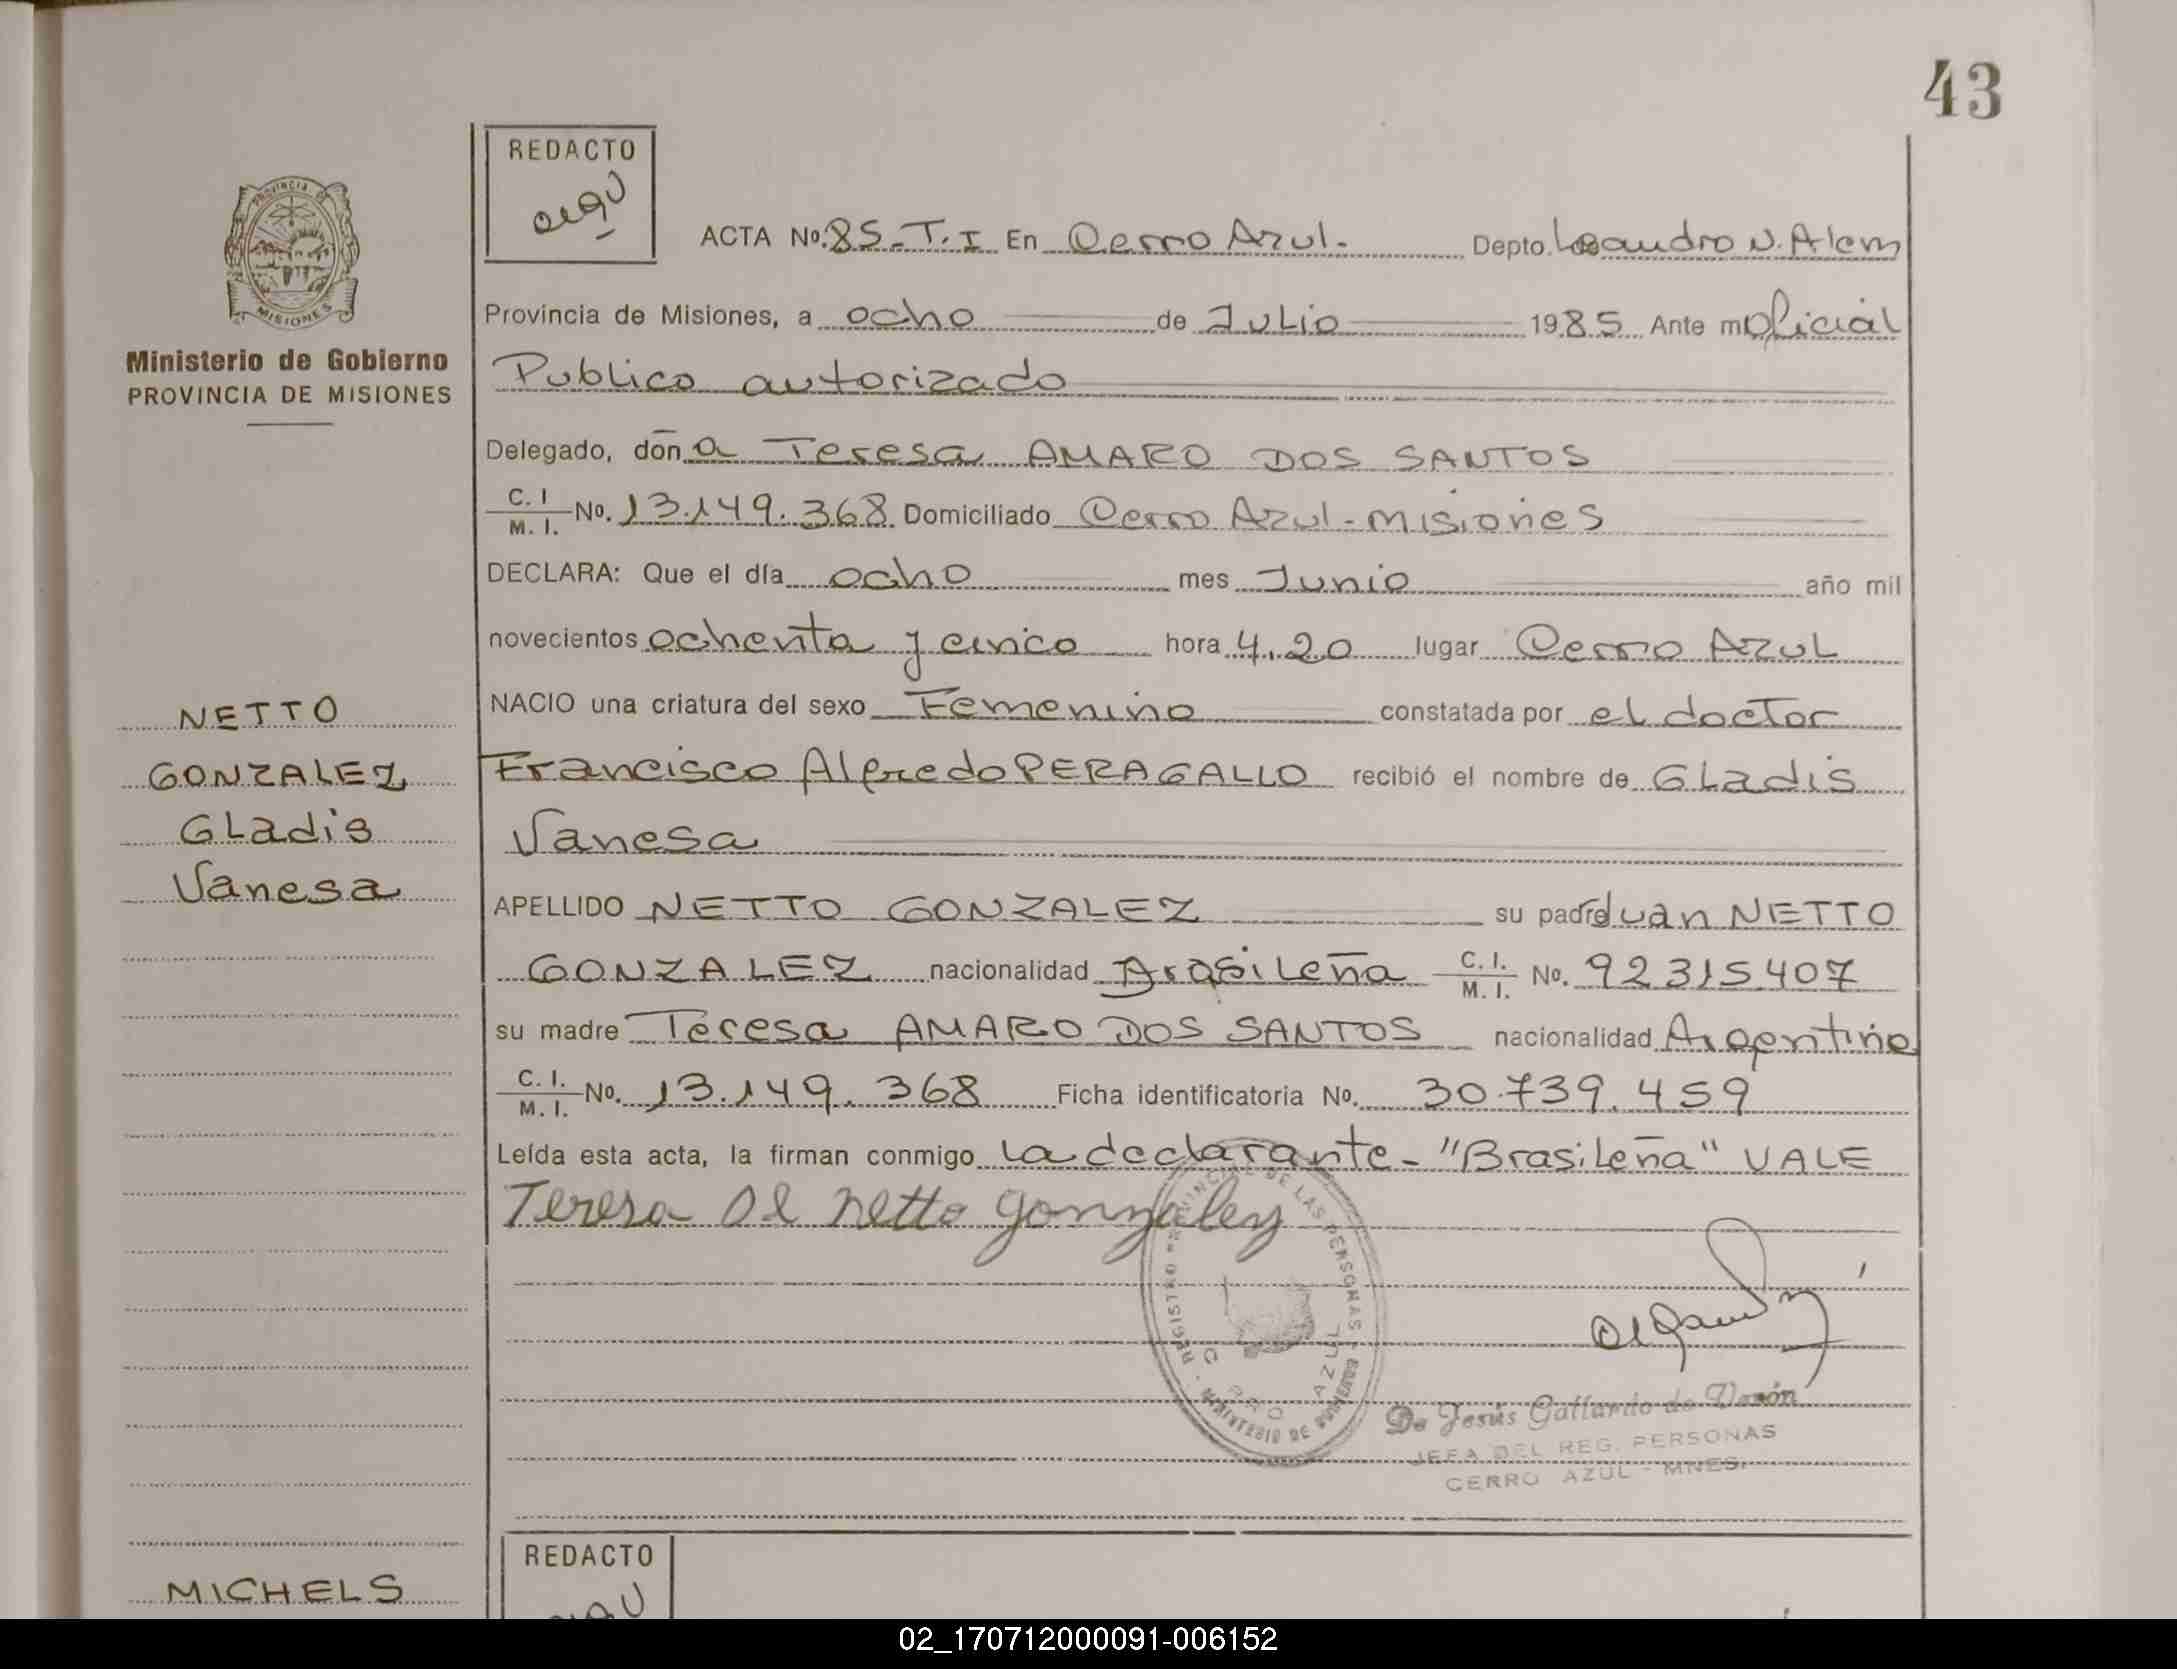 43
REDACTO
PROVINCIA DE
MISIONES
ACTA No. 85-T.I En Cerro Azul. Depto. Leandro N. Alem
Provincia de Misiones, a ocho de Julio 1985 Ante mi Oficial
Ministerio de Gobierno
PROVINCIA DE MISIONES
Publico autorizado
Delegado, doña Teresa AMARO DOS SANTOS
C. I / M. I. No. 13.149.368 Domiciliado Cerro Azul - Misiones
DECLARA: Que el día ocho mes Junio año mil
novecientos ochenta y cinco hora 4.20 lugar Cerro Azul
NETTO
GONZALEZ
Gladis
Vanesa
NACIO una criatura del sexo Femenino constatada por el doctor
Francisco Alfredo PERAGALLO recibió el nombre de Gladis
Vanesa
APELLIDO NETTO GONZALEZ su padre Juan NETTO
GONZALEZ nacionalidad Brasileña C. I. / M. I. No. 92315407
su madre Teresa AMARO DOS SANTOS nacionalidad Argentina
C. I. / M. I. No. 13.149.368 Ficha identificatoria No. 30.739.459
Leída esta acta, la firman conmigo la declarante - "Brasileña" VALE
Teresa de netto gonzalez
REGISTRO PROVINCIAL DE LAS PERSONAS
CERRO AZUL
MINISTERIO DE GOBIERNO
De Jesús Gallardo de
JEFA DEL REG. PERSONAS
CERRO AZUL - MNES.
REDACTO
MICHELS
02_170712000091-006152